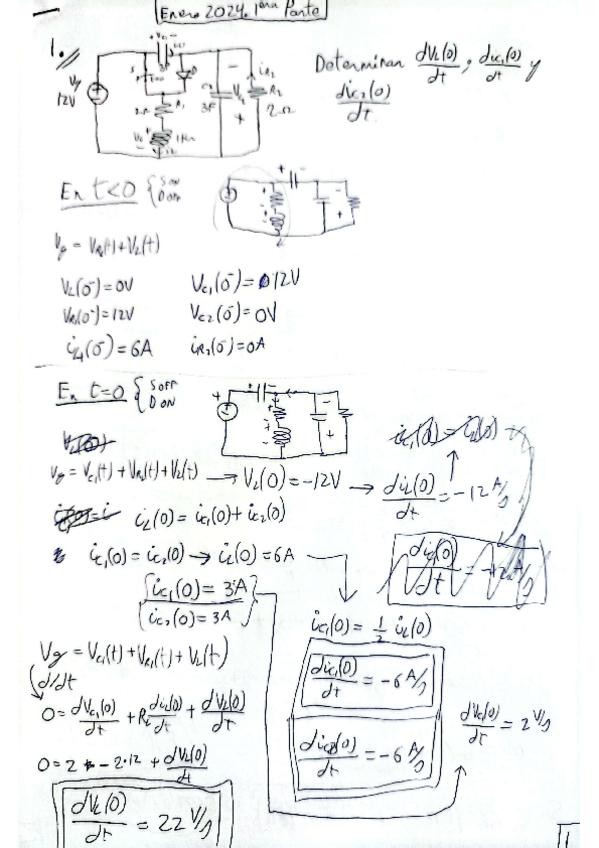 Enero 2024. 1era Parte
1.
Determinar dVL(0)/dt, diC1(0)/dt y
diC2(0)/dt
Vg
12V
2Ω
3F
R2
2Ω
En t<0 { S ON
D OFF
Vg = VR1(t)+VL(t)
VL(0-)=0V VC1(0-)=12V
VR1(0-)=12V VC2(0-)=0V
iL(0-)=6A iR2(0-)=0A
En t=0 { S OFF
D ON
Vg = VC1(t)+VR1(t)+VL(t) → VL(0)=-12V → diL(0)/dt = -12 A/s
iL(0) = iC1(0)+iC2(0)
iC1(0) = iC2(0) → iL(0)=6A
iC1(0) = 3A
iC2(0) = 3A
iC1(0) = 1/2 iL(0)
Vg = VC1(t)+VR1(t)+VL(t)
d/dt
diC1(0)/dt = -6 A/s
0 = dVC1(0)/dt + R1 diL(0)/dt + dVL(0)/dt
dVC1(0)/dt = 2 V/s
diC2(0)/dt = -6 A/s
0 = 2 - 2·12 + dVL(0)/dt
dVL(0)/dt = 22 V/s
1